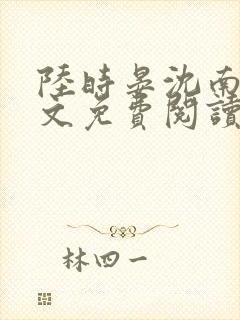 陸時晏沈南
文免費閱讀
林四一